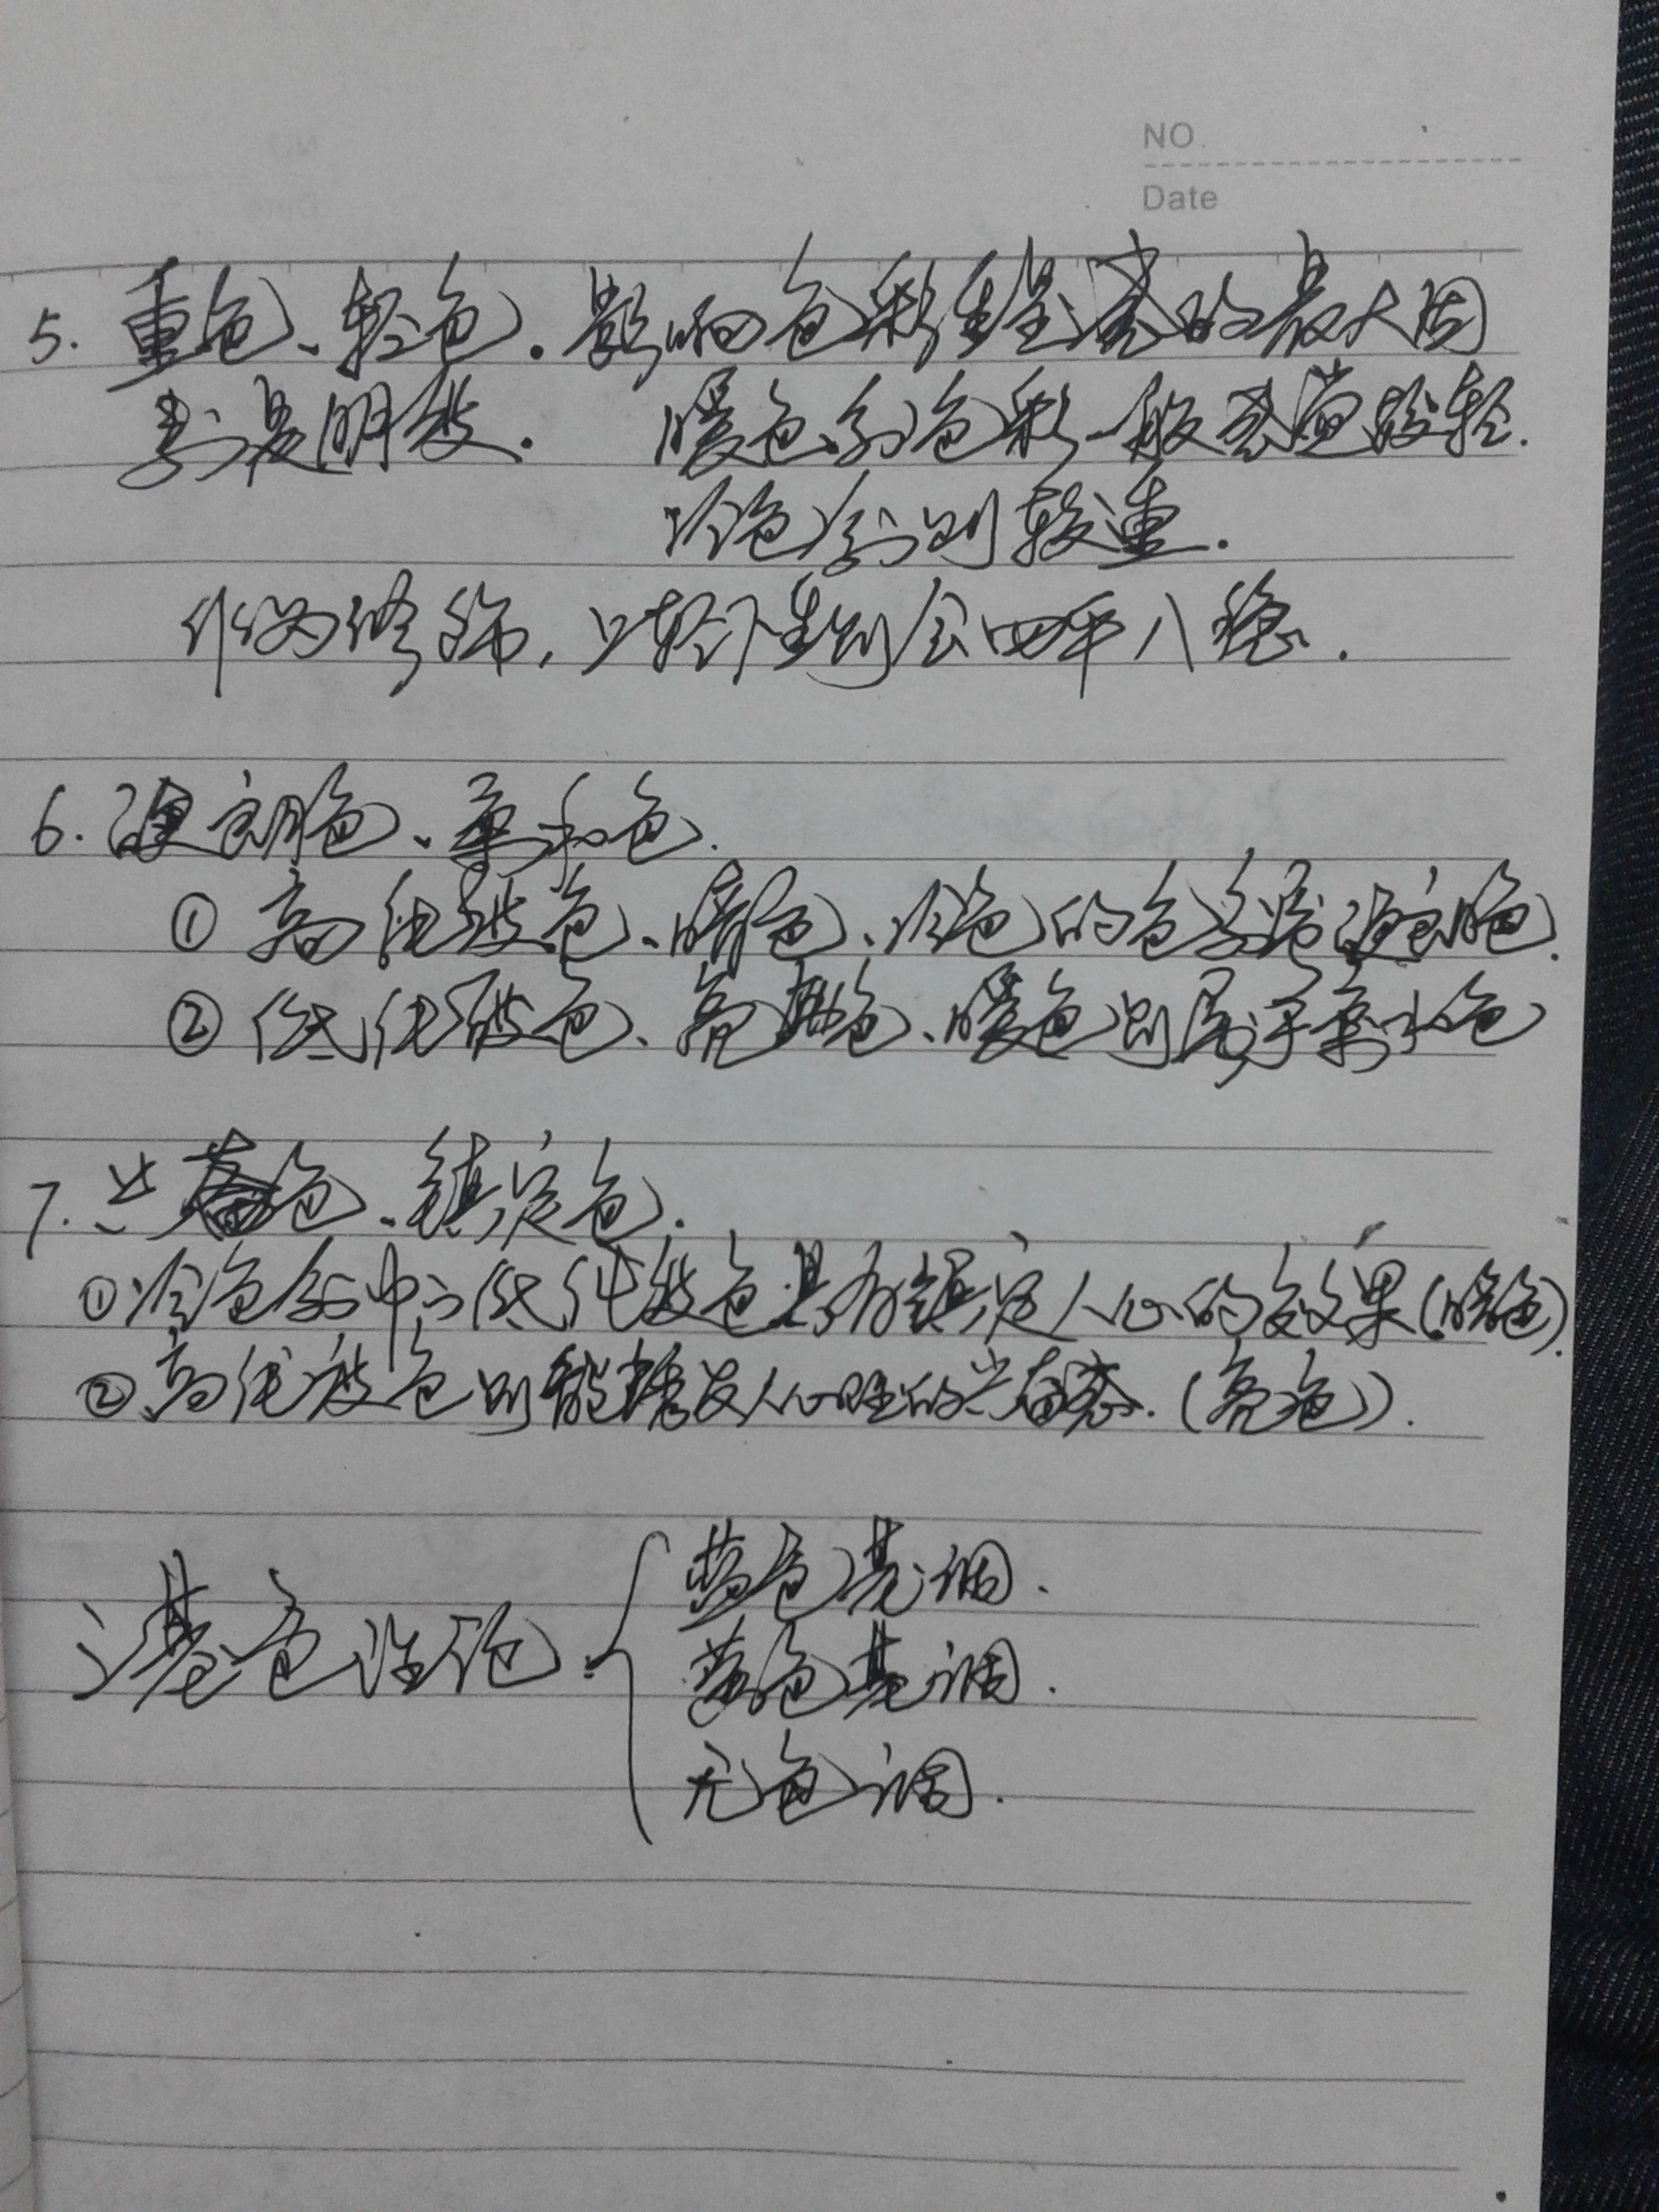 NO.
Date
5. 重色、轻色. 影响色彩重量感的最大因
素是明度. 暖色系色彩一般感觉较轻.
冷色系则较重.
作为修饰, 上轻下重则会四平八稳.
6. 硬朗色、柔和色.
① 高纯度色、暗色、冷色的色系为硬朗色.
② 低纯度色、亮色、暖色则属于柔和色
7. 兴奋色、镇定色.
①冷色系中的低纯度色具有镇定人心的效果(暗色).
②高纯度色则能激发人心理的兴奋态.(亮色).
基色理论
蓝色基调.
黄色基调.
无色调.